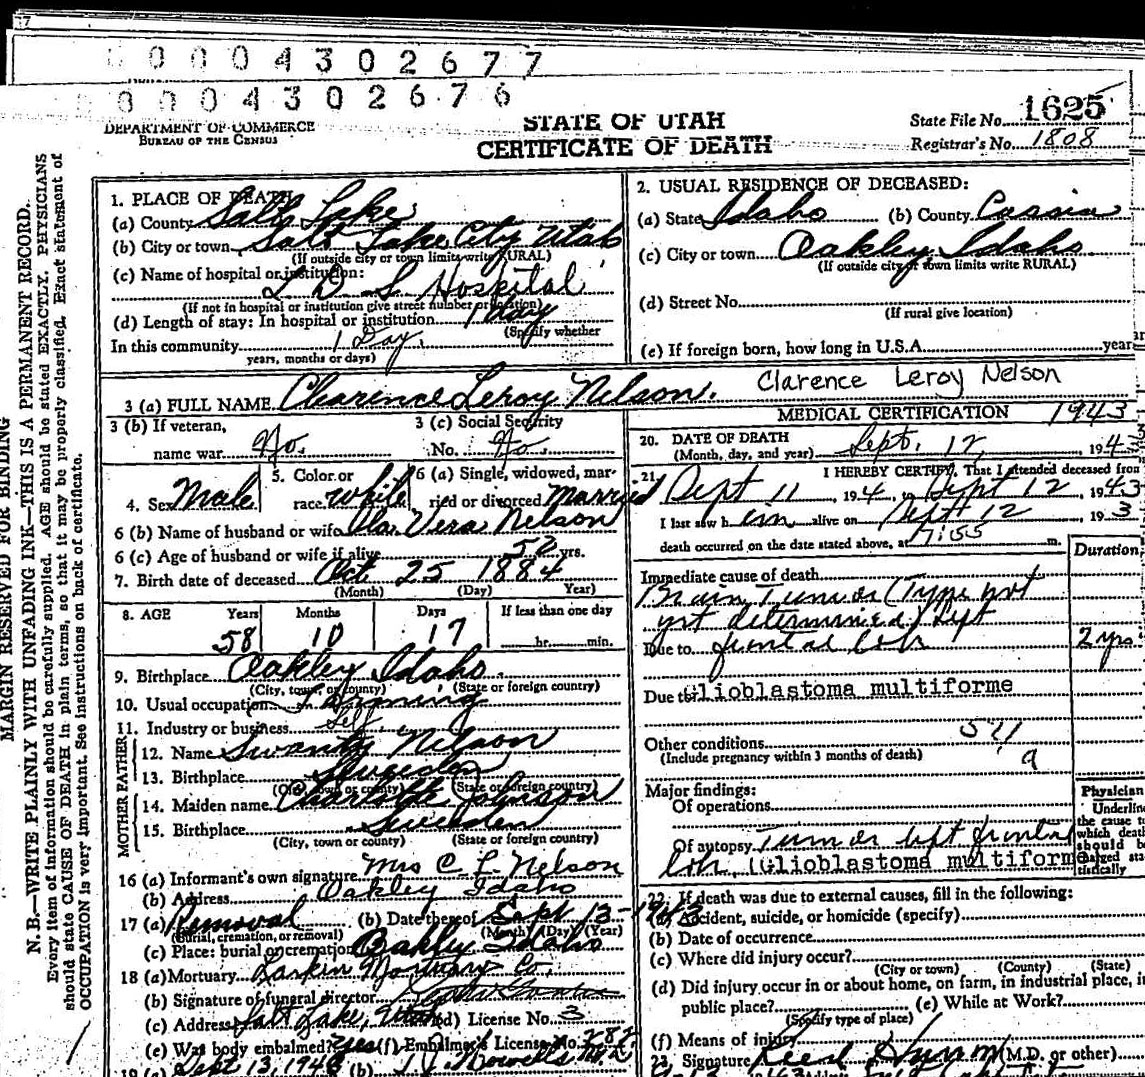 0 0 0 4 3 0 2 6 7 7
0 0 0 4 3 0 2 6 7 6
DEPARTMENT OF COMMERCE
BUREAU OF THE CENSUS
STATE OF UTAH
CERTIFICATE OF DEATH
State File No. 1625
Registrar's No. 1808
MARGIN RESERVED FOR BINDING
N. B.—WRITE PLAINLY WITH UNFADING INK—THIS IS A PERMANENT RECORD.
Every item of information should be carefully supplied. AGE should be stated EXACTLY. PHYSICIANS
should state CAUSE OF DEATH in plain terms, so that it may be properly classified. Exact statement of
OCCUPATION is very important. See instructions on back of certificate.
1. PLACE OF DEATH
(a) County Salt Lake
(b) City or town Salt Lake City Utah
(If outside city or town limits write RURAL)
(c) Name of hospital or institution:
L D S Hospital
(If not in hospital or institution give street number or location)
(d) Length of stay: In hospital or institution 1 day
(Specify whether
In this community 1 Day.
years, months or days)
2. USUAL RESIDENCE OF DECEASED:
(a) State Idaho (b) County Cassia
(c) City or town Oakley Idaho
(If outside city or town limits write RURAL)
(d) Street No.
(If rural give location)
(e) If foreign born, how long in U.S.A. years
3 (a) FULL NAME Clarence Leroy Nelson. Clarence Leroy Nelson
3 (b) If veteran,
name war No.
3 (c) Social Security
No. No.
4. Sex Male
5. Color or
race white
6 (a) Single, widowed, mar-
ried or divorced Married
6 (b) Name of husband or wife Vera Nelson
6 (c) Age of husband or wife if alive 52 yrs.
7. Birth date of deceased Oct 25 1884
(Month) (Day) Year)
8. AGE Years Months Days If less than one day
58 10 17 hr. min.
9. Birthplace Oakley Idaho.
(City, town, or county) (State or foreign country)
10. Usual occupation Farming
11. Industry or business Self
FATHER
12. Name Nelson
13. Birthplace Sweeden
(City, town or county) (State or foreign country)
MOTHER
14. Maiden name Charlotte Johnson
15. Birthplace Sweeden
(City, town or county) (State or foreign country)
16 (a) Informant's own signature Mrs C L Nelson
(b) Address Oakley Idaho
17 (a) Removal (b) Date thereof Sept 13-1943
(Burial, cremation, or removal) (Month) (Day) (Year)
(c) Place: burial or cremation Oakley Idaho
18 (a) Mortuary Larkin Mortuary Co.
(b) Signature of funeral director
(c) Address Salt Lake, Utah (d) License No. 3
(e) Was body embalmed? yes (f) Embalmer's License No. 282
19 (a) Sept 13, 1943 (b)
MEDICAL CERTIFICATION 1943
20. DATE OF DEATH
(Month, day, and year) Sept. 12, 194
21. I HEREBY CERTIFY, That I attended deceased from
Sept 11, 194 , to Sept 12, 1943
I last saw him alive on Sept 12, 193
death occurred on the date stated above, at 7:55 m.
Duration
Immediate cause of death
Brain Tumor (Type not
yet determined) left
Due to frontal lobe 2 yrs.
Due to Glioblastoma multiforme
Other conditions
(Include pregnancy within 3 months of death) 9
Major findings:
Of operations
Of autopsy Tumor left frontal
lobe. (Glioblastoma multiforme)
Physician
Underline
the cause to
which death
should be
charged sta-
tistically
22. If death was due to external causes, fill in the following:
(a) Accident, suicide, or homicide (specify)
(b) Date of occurrence
(c) Where did injury occur?
(City or town) (County) (State)
(d) Did injury occur in or about home, on farm, in industrial place, in
public place? (e) While at Work?
(Specify type of place)
(f) Means of injury
23. Signature (M.D. or other)